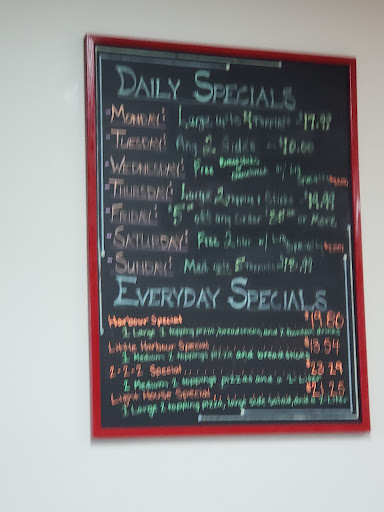 DAILY SPECIALS
MONDAY: Large up to 4 Toppings $17.99
TUESDAY: Any 2 Sides 10.00
WEDNESDAY: Free Breadsticks w/ Lg Specialty
THURSDAY: Large 2 topping & Sticks $19.99
FRIDAY: $5 off any order or More
SATURDAY: Free 2 Liter w/ Lg Specialty
SUNDAY: Med w/ 5
EVERYDAY SPECIALS
Harbour Special
1 Large 1 topping pizza, breadsticks, and 2
Little Harbour Special $13.54
1 Medium 2 toppings pizza and breadsticks
2-2-2 Special $23.29
2 Medium 2 toppings pizzas and a 2 Liter
Light House Special $21.25
1 Large 2 topping pizza, large side salad, and a 2 Liter